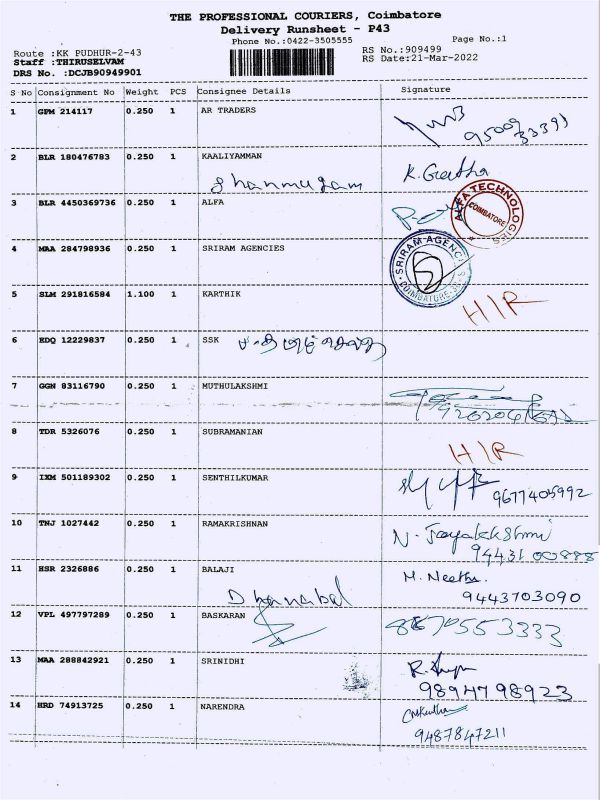 THE PROFESSIONAL COURIERS, Coimbatore
Delivery Runsheet - P43
Phone No.:0422-3505555 Page No.:1
Route :KK PUDHUR-2-43 RS No.:909499
Staff :THIRUSELVAM RS Date:21-Mar-2022
DRS No. :DCJB90949901
S No Consignment No Weight PCS Consignee Details Signature
1 GPM 214117 0.250 1 AR TRADERS
2 BLR 180476783 0.250 1 KAALIYAMMAN K. Geetha
Shanmugam
3 BLR 4450369736 0.250 1 ALFA
ALFA TECHNOLOGIES COIMBATORE
4 MAA 284798936 0.250 1 SRIRAM AGENCIES
SRIRAM AGENCIES
5 SLM 291816584 1.100 1 KARTHIK HIR
6 EDQ 12229837 0.250 1 SSK
7 GGN 83116790 0.250 1 MUTHULAKSHMI
8 TDR 5326076 0.250 1 SUBRAMANIAN HIR
9 IXM 501189302 0.250 1 SENTHILKUMAR
9677405992
10 TNJ 1027442 0.250 1 RAMAKRISHNAN N. Jayalakshmi
9443100888
11 HSR 2326886 0.250 1 BALAJI M. Neetha.
Dhanabal 9443703090
12 VPL 497797289 0.250 1 BASKARAN
13 MAA 288842921 0.250 1 SRINIDHI
9894798923
14 HRD 74913725 0.250 1 NARENDRA
9487847211